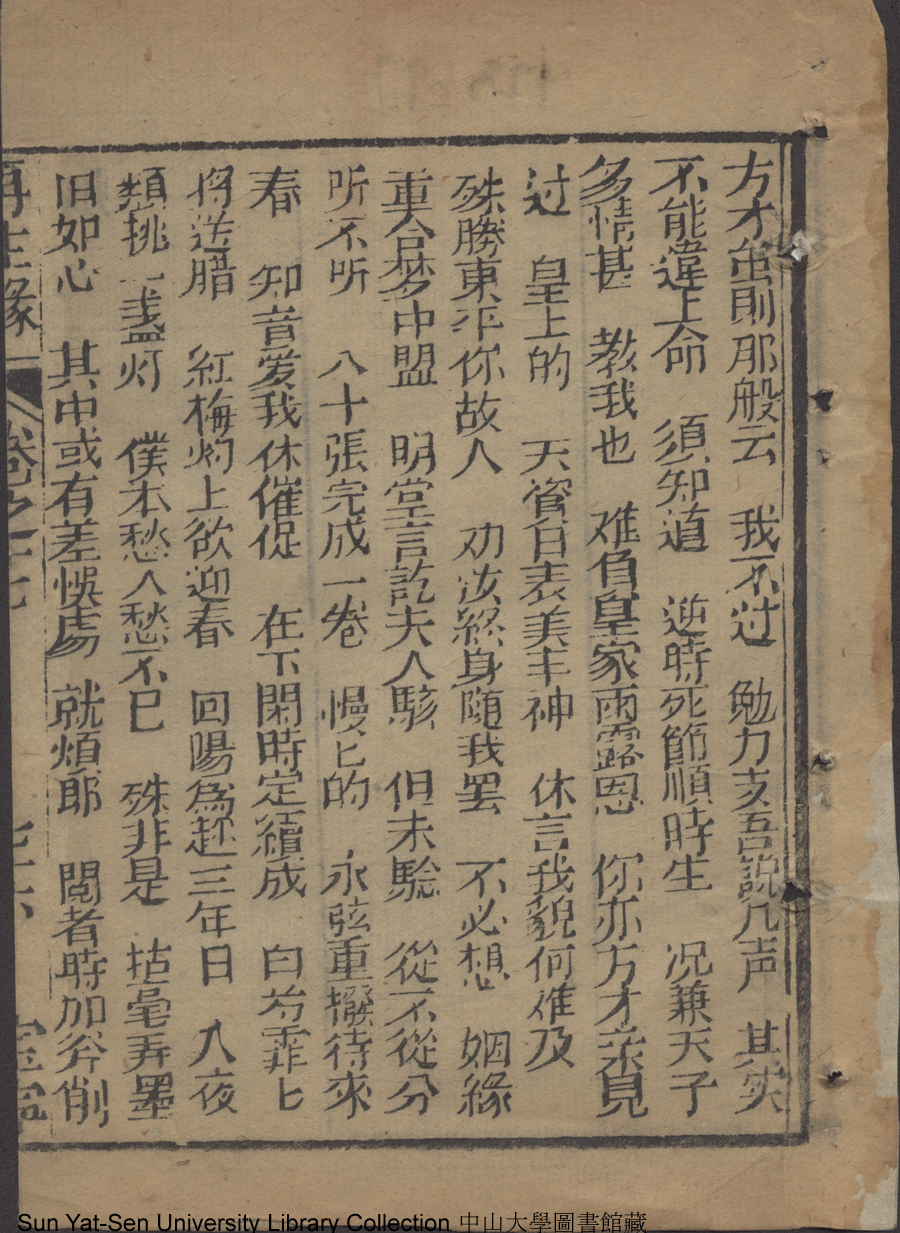 方才虽則那般云　我不过　勉力支吾説几声　其实
不能違上命　須知道　逆時死節順時生　况兼天子
多情甚　教我也　难負皇家雨露恩　你亦方才亲見
过　皇上的　天資日表美丰神　休言我貌何难及
殊勝東平你故人　劝汝終身随我罢　不必想　姻緣
重合梦中盟　明堂言訖夫人駭　但未騐　從不從分
听不听　八十張完成一卷　慢匕的　永弦重撥待來
春　知音爱我休催促　在下閑時定續成　白芍霏匕
将送腊　紅梅灼上欲迎春　回陽為趂三年日　入夜
頻挑一盞灯　僕本愁人愁不已　殊非是　拈毫弄墨
旧如心　其中或有差悞處　就煩郎　閲者時加斧削
再生縁　卷之十七